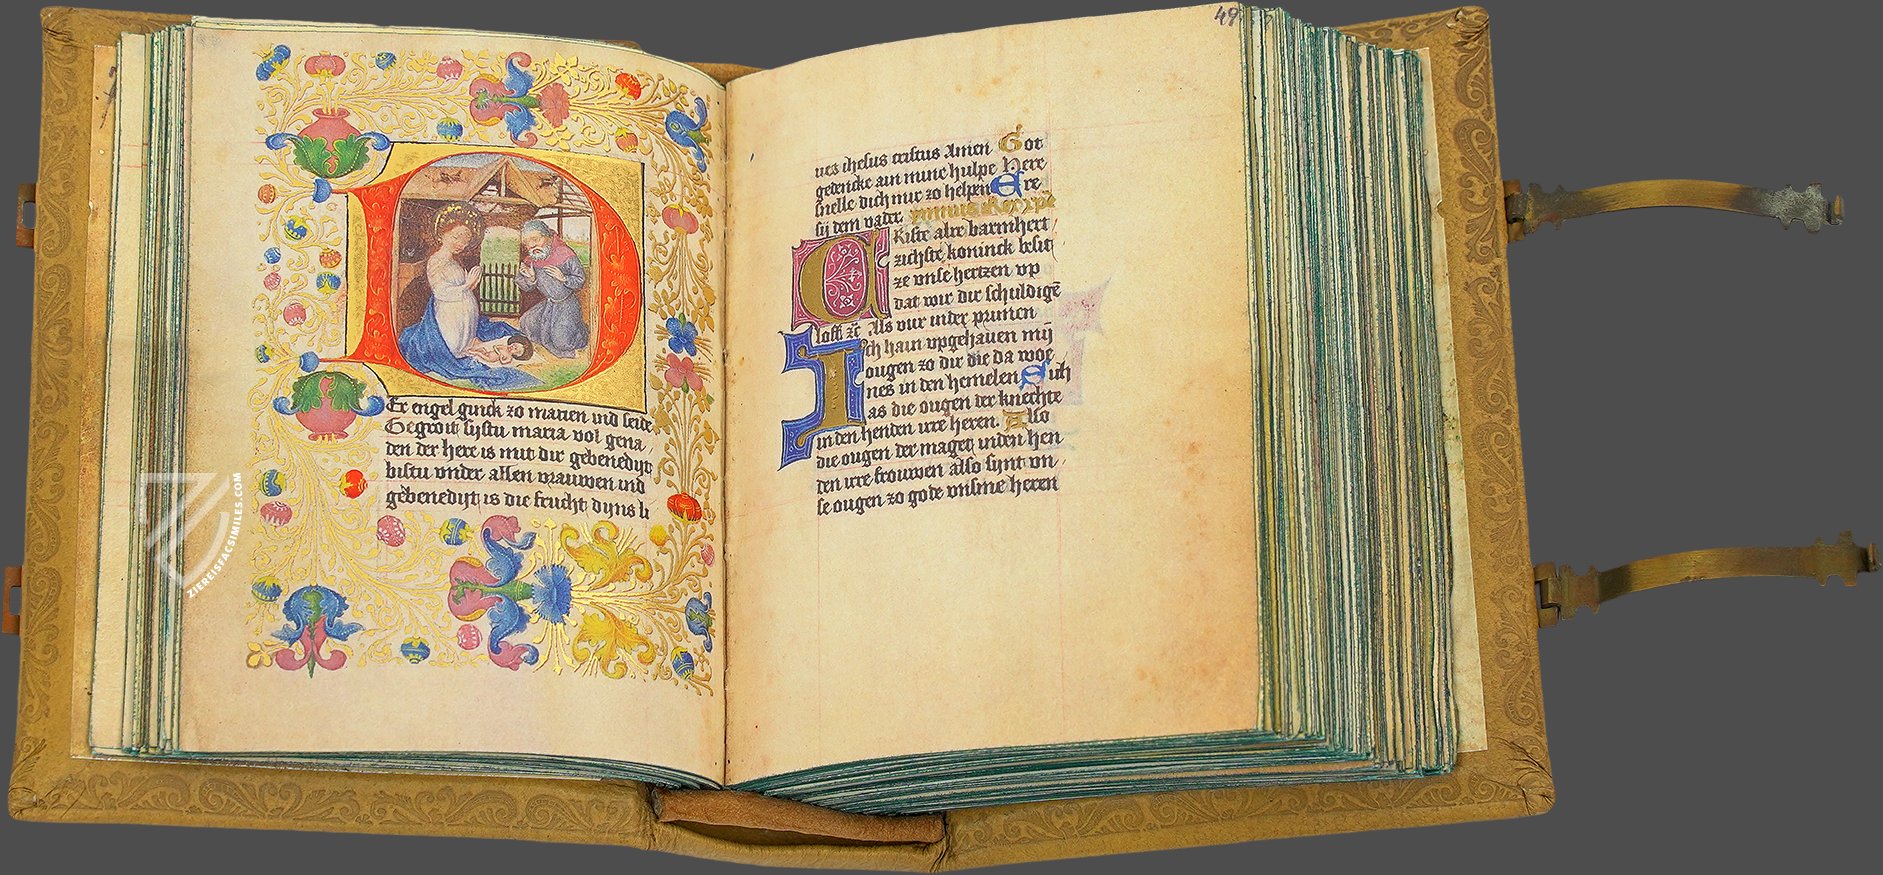 Er engel quick zo marien und seide
Gegroit sijstu maria vol gena
den der here is mit dir gebenedijt
bistu vnder allen vrauwen ind
gebenedijt is die frucht dijns li
49
ues ihesus cristus Amen Got
gedencke ain mine hulpe Here
snelle dich mir zo helpen Ere
sij dem vader.
Kiste alre barmhert
zichste koninck besit
ze vnse hertzen vp
dat wir dir schuldigē
loff zc Als vur in der primen
Ich hain vpgehauen mij
ougen zo dir die da woe
nes in den hemelen Sich
as die ougen der knechte
in den henden irre heren. Also
die ougen der maget in den hen
den irre frouwen also sijnt vn
se ougen zo gode vnsme heren
ZIEREISFACSIMILES.COM